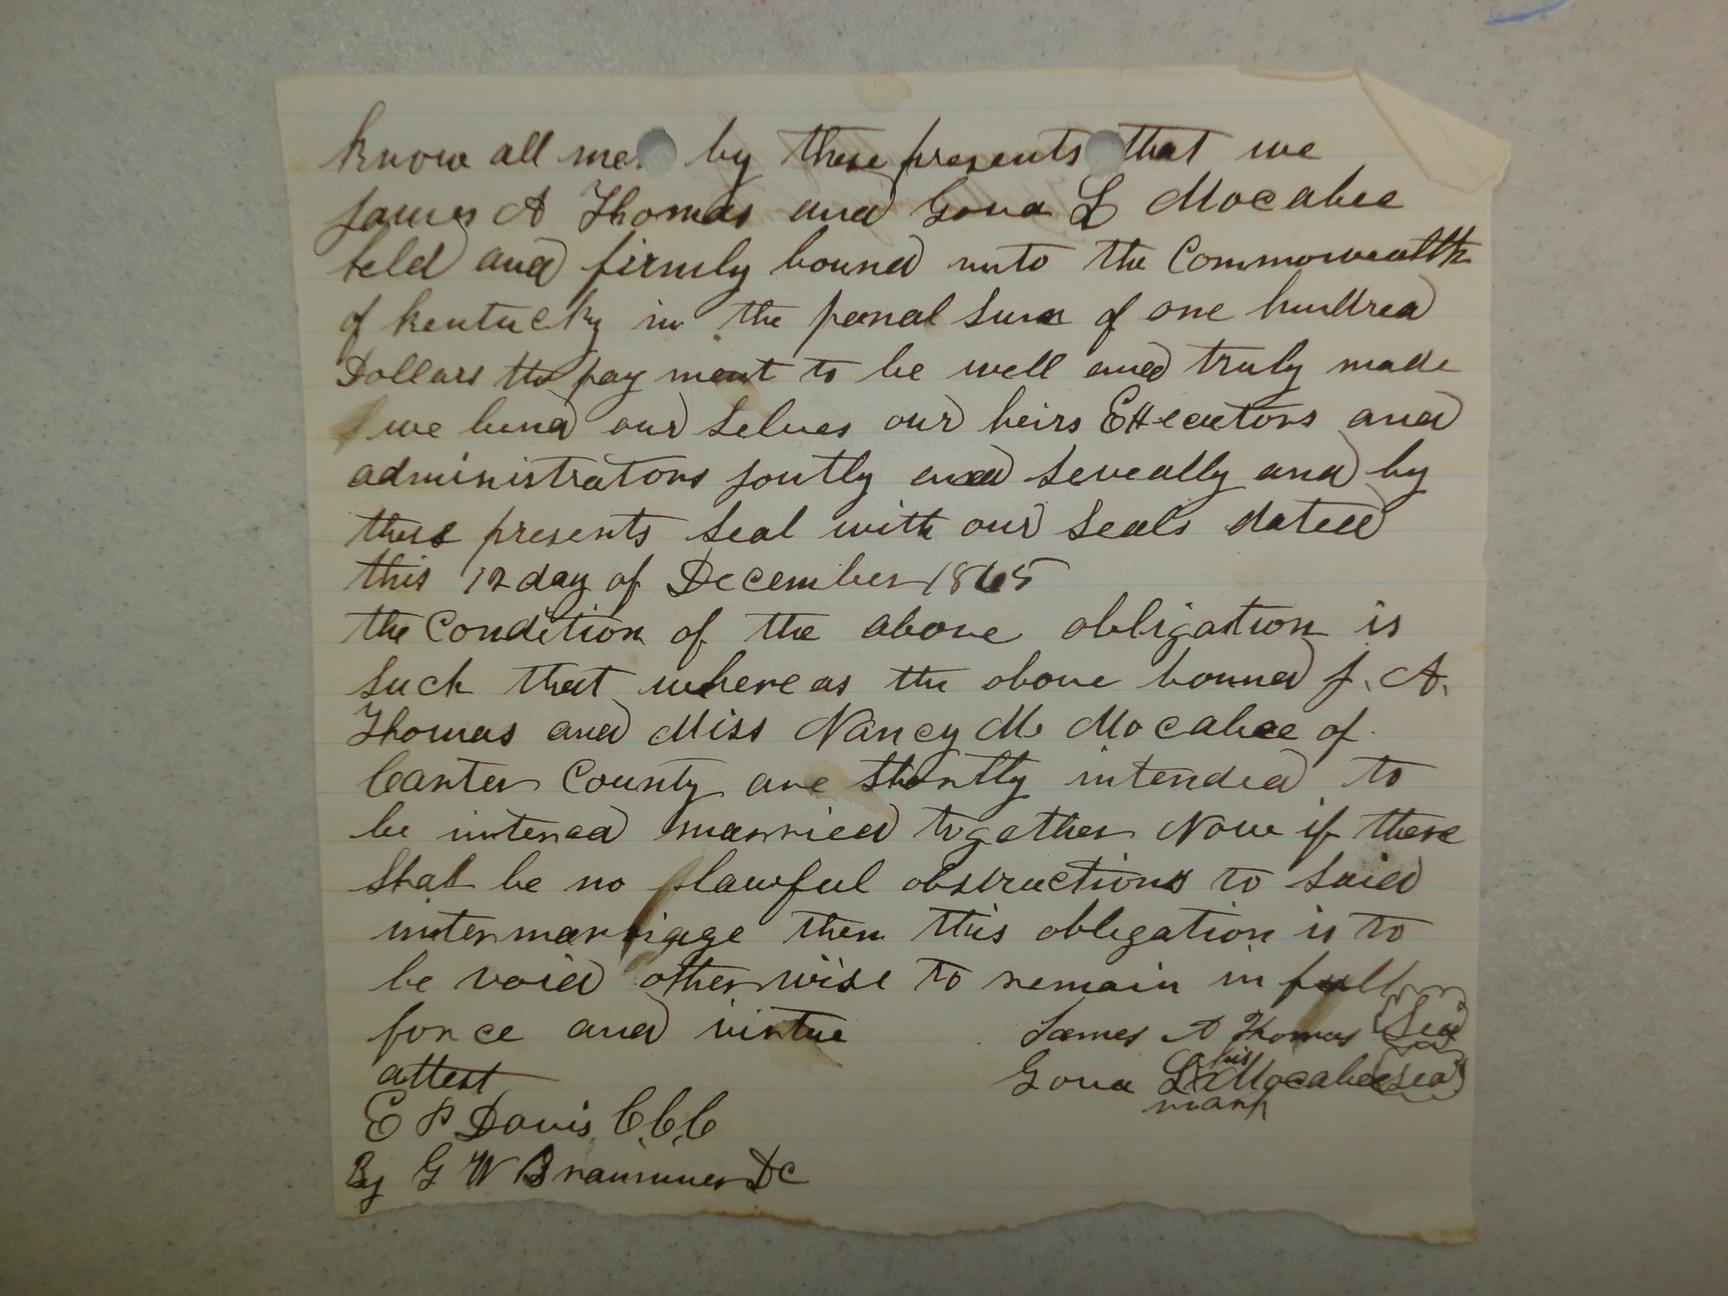 know all men by these presents that we
James A Thomas and Gova L Mocabee
held and firmly bound unto the Commonwealth
of Kentucky in the penal sum of one hundred
Dollars the pay ment to be well and truly made
we bind our selves our heirs Executors and
administrators jontly and seveally and by
these presents seal with our seals dated
this 12 day of December 1865
the Condition of the above obligation is
such that where as the above bound J. A.
Thomas and Miss Nancy M. Mocabee of
Carter County are shortly intended to
be intered married together Now if there
shal be no lawful obstructions to said
intermarriage then this obligation is to
be void other wise to remain in full
force and virtue James A Thomas Seal
attest Gova L his x Mocabee Seal
mark
E P Davis C.C.C
By G W Brammer DC